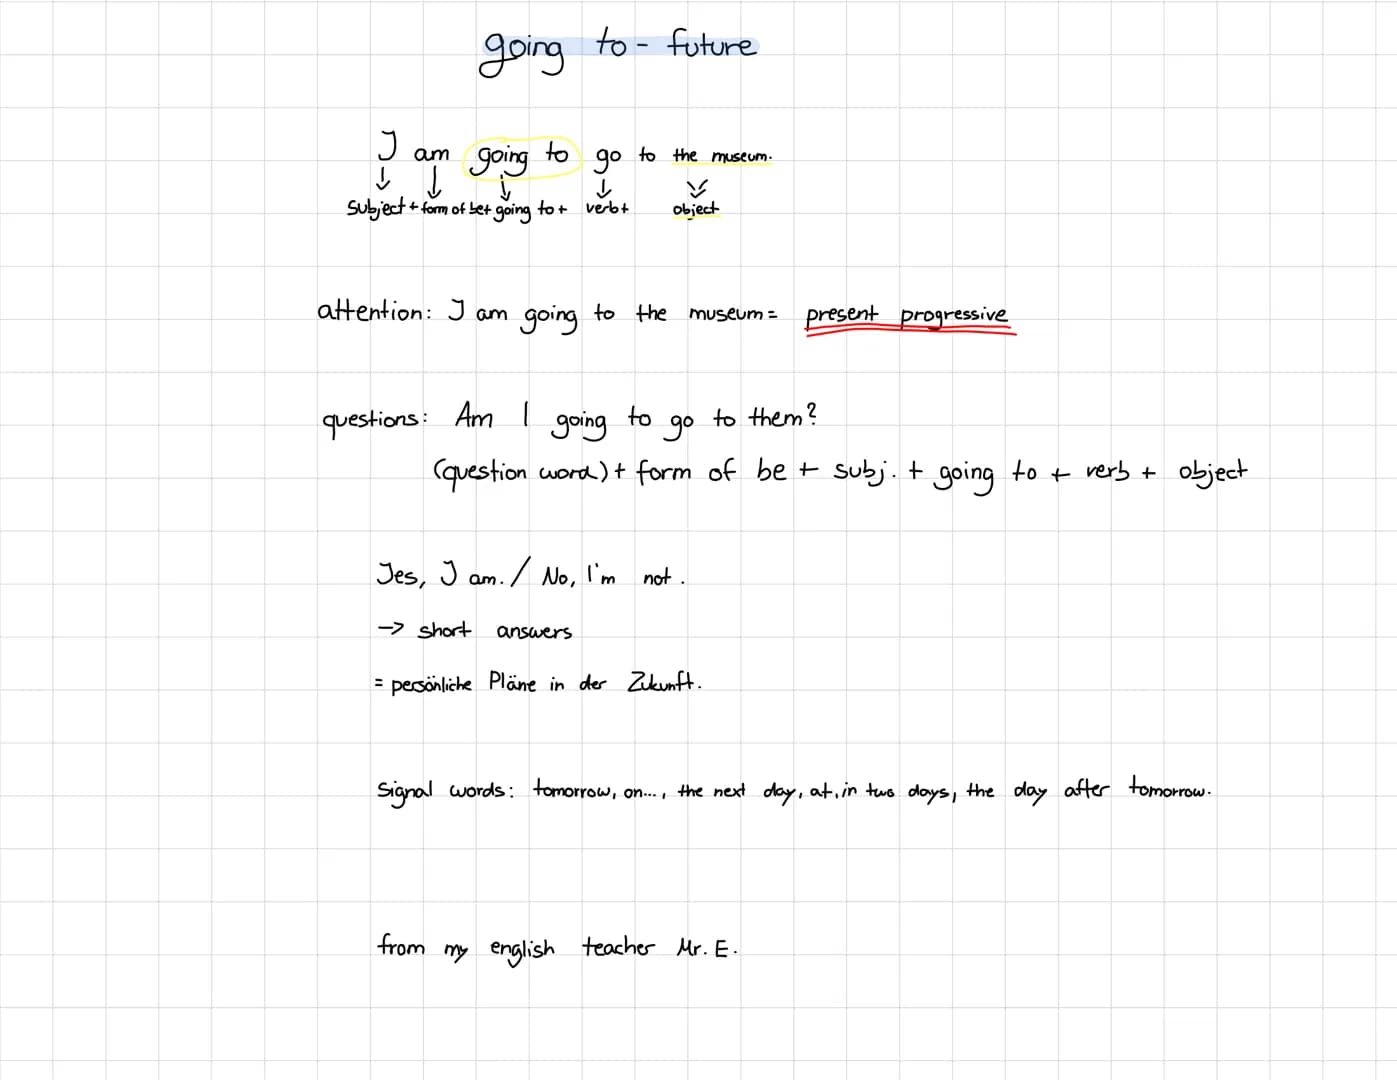 going to - future
I am going to go to the museum.
Subject + form of be + going to + verb + object
attention: I am going to the museum = present progressive
questions: Am I going to go to them?
(question word) + form of be + subj. + going to + verb + object
Yes, I am. / No, I'm not.
-> short answers
= persönliche Pläne in der Zukunft.
Signal words: tomorrow, on..., the next day, at, in two days, the day after tomorrow.
from my english teacher Mr. E.